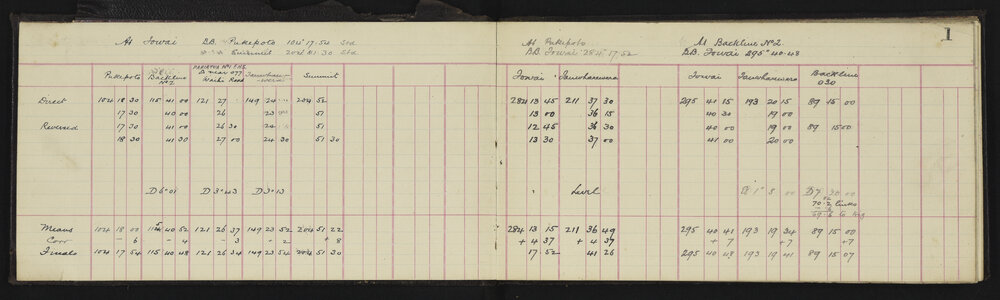 At Towai BB Pukepoto 104° 17·54 Std
Summit 204 51 30 Std
Pukepoto Backline No 2 D near 077 Waihi Road Tauwharewera Summit
Direct 104 18 30 115 41 00 121 27 149 24 204 52
17 30 40 00 26 23 00 51
Reversed 17 30 41 00 26 30 24 51
18 30 41 30 27 00 24 30 51 30
D 6° 01 D 3° 43 D 3° 13
Means 104 18 00 115 40 52 121 26 37 149 23 52 204 51 22
Corr - 6 - 4 - 3 + 2 + 8
Finals 104 17 54 115 40 48 121 26 34 149 23 54 204 51 30
At Pukepoto
BB Towai 284° 17·52
Towai Tauwharewera
284 13 45 211 37 30
13 00 36 15
12 45 36 30
13 30 37 00
Level
284 13 15 211 36 49
+ 4 37 + 4 37
17·52 41 26
1
At Backline No 2
BB Towai 295° 40·48
Towai Tauwharewera Backline 030
295 41 15 193 20 15 89 15 00
40 30 19 00
40 00 19 00 89 15 00
41 00 20 00
1° 5 00 D 7 30 00
70·2 links
69·6
295 40 41 193 19 34 89 15 00
+ 7 +7 +7
295 40 48 193 19 41 89 15 07